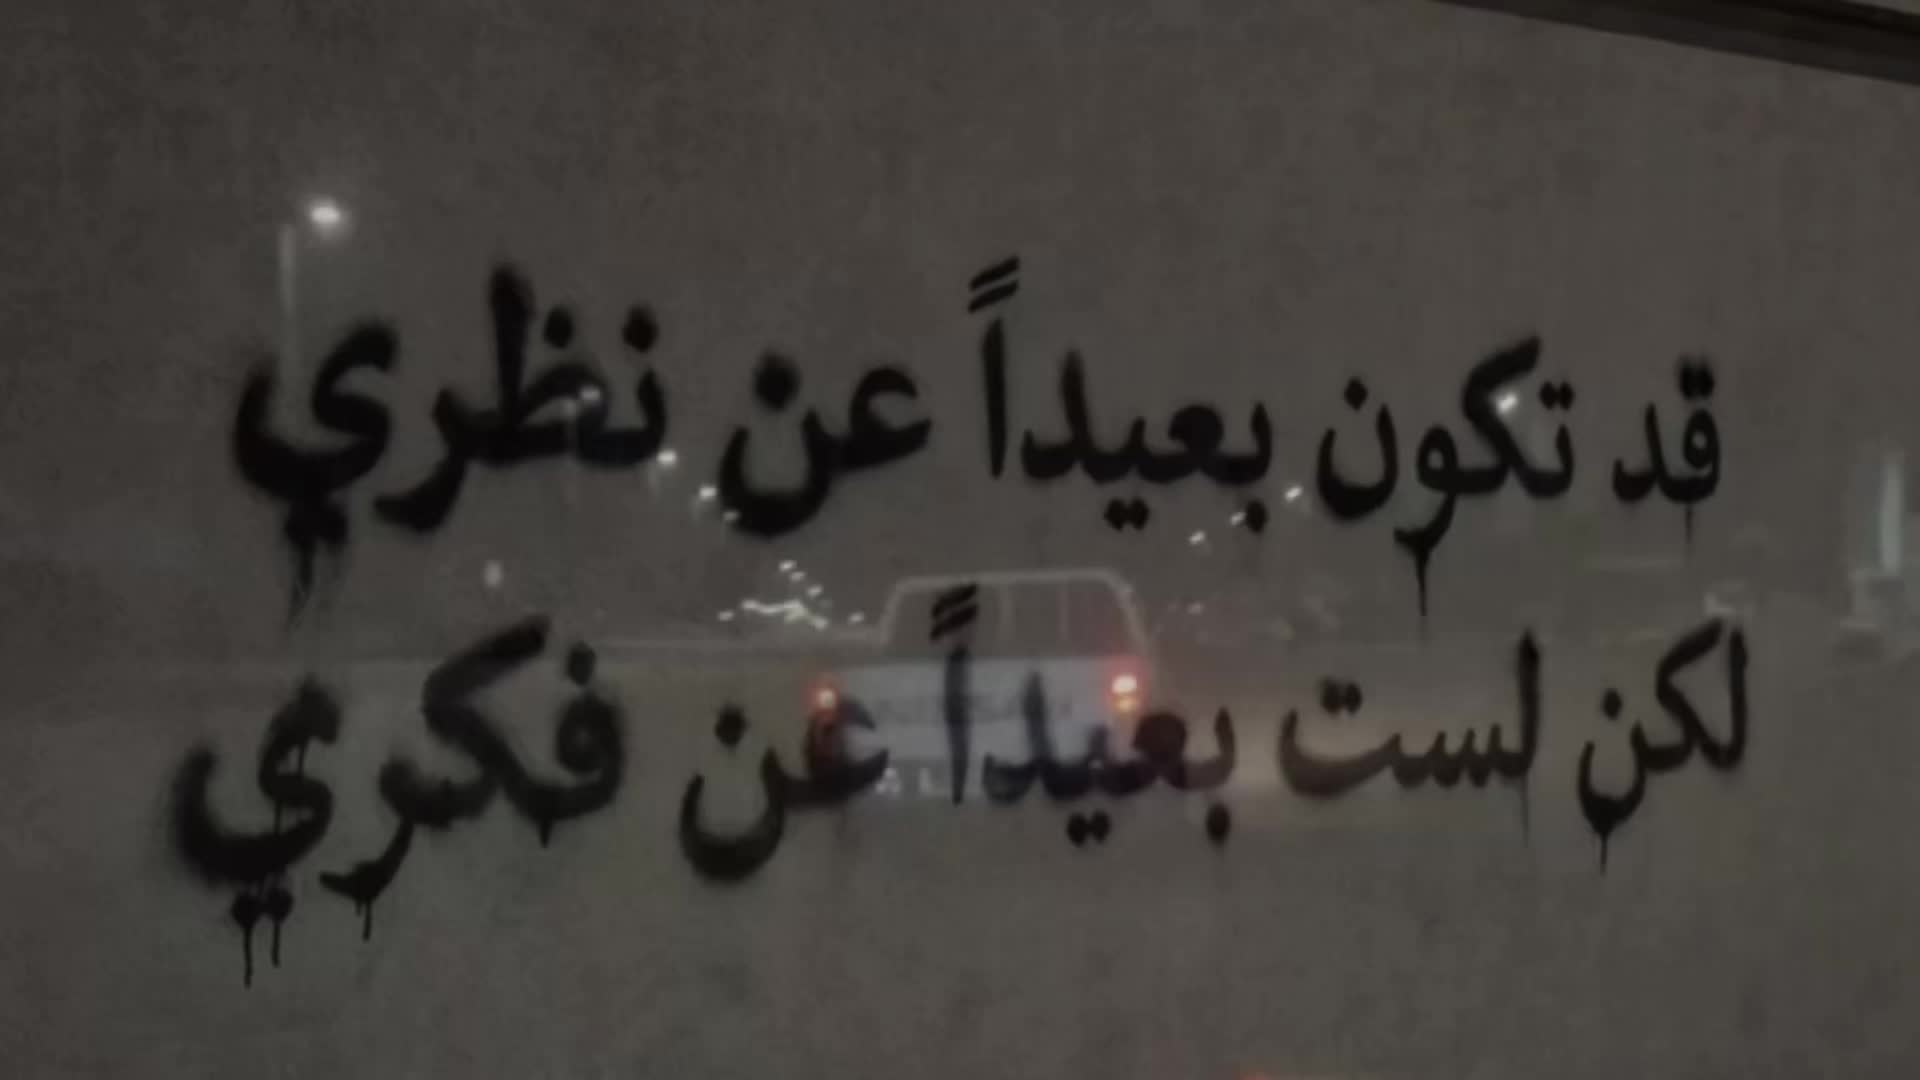 قد تكون بعيداً عن نظري
لكن لست بعيداً عن فكري